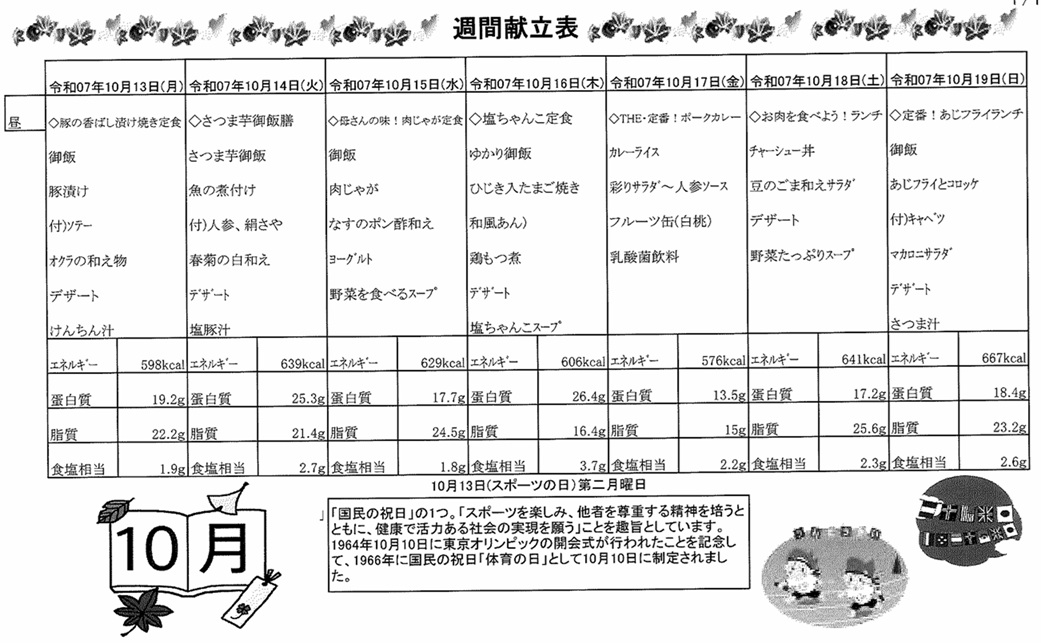 週間献立表
令和07年10月13日(月) 令和07年10月14日(火) 令和07年10月15日(水) 令和07年10月16日(木) 令和07年10月17日(金) 令和07年10月18日(土) 令和07年10月19日(日)
昼
◇豚の香ばし漬け焼き定食 ◇さつま芋御飯膳 ◇母さんの味！肉じゃが定食 ◇塩ちゃんこ定食 ◇THE・定番！ポークカレー ◇お肉を食べよう！ランチ ◇定番！あじフライランチ
御飯 さつま芋御飯 御飯 ゆかり御飯 カレーライス チャーシュー丼 御飯
豚漬け 魚の煮付け 肉じゃが ひじき入たまご焼き 彩りサラダ～人参ソース 豆のごま和えサラダ あじフライとコロッケ
付)ソテー 付)人参、絹さや なすのポン酢和え 和風あん) フルーツ缶(白桃) デザート 付)キャベツ
オクラの和え物 春菊の白和え ヨーグルト 鶏もつ煮 乳酸菌飲料 野菜たっぷりスープ マカロニサラダ
デザート デザート 野菜を食べるスープ デザート デザート
けんちん汁 塩豚汁 塩ちゃんこスープ さつま汁
エネルギー 598kcal エネルギー 639kcal エネルギー 629kcal エネルギー 606kcal エネルギー 576kcal エネルギー 641kcal エネルギー 667kcal
蛋白質 19.2g 蛋白質 25.3g 蛋白質 17.7g 蛋白質 26.4g 蛋白質 13.5g 蛋白質 17.2g 蛋白質 18.4g
脂質 22.2g 脂質 21.4g 脂質 24.5g 脂質 16.4g 脂質 15g 脂質 25.6g 脂質 23.2g
食塩相当 1.9g 食塩相当 2.7g 食塩相当 1.8g 食塩相当 3.7g 食塩相当 2.2g 食塩相当 2.3g 食塩相当 2.6g
10月13日(スポーツの日) 第二月曜日
「国民の祝日」の1つ。「スポーツを楽しみ、他者を尊重する精神を培うと
ともに、健康で活力ある社会の実現を願う」ことを趣旨としています。
1964年10月10日に東京オリンピックの開会式が行われたことを記念し
て、1966年に国民の祝日「体育の日」として10月10日に制定されまし
た。
10月